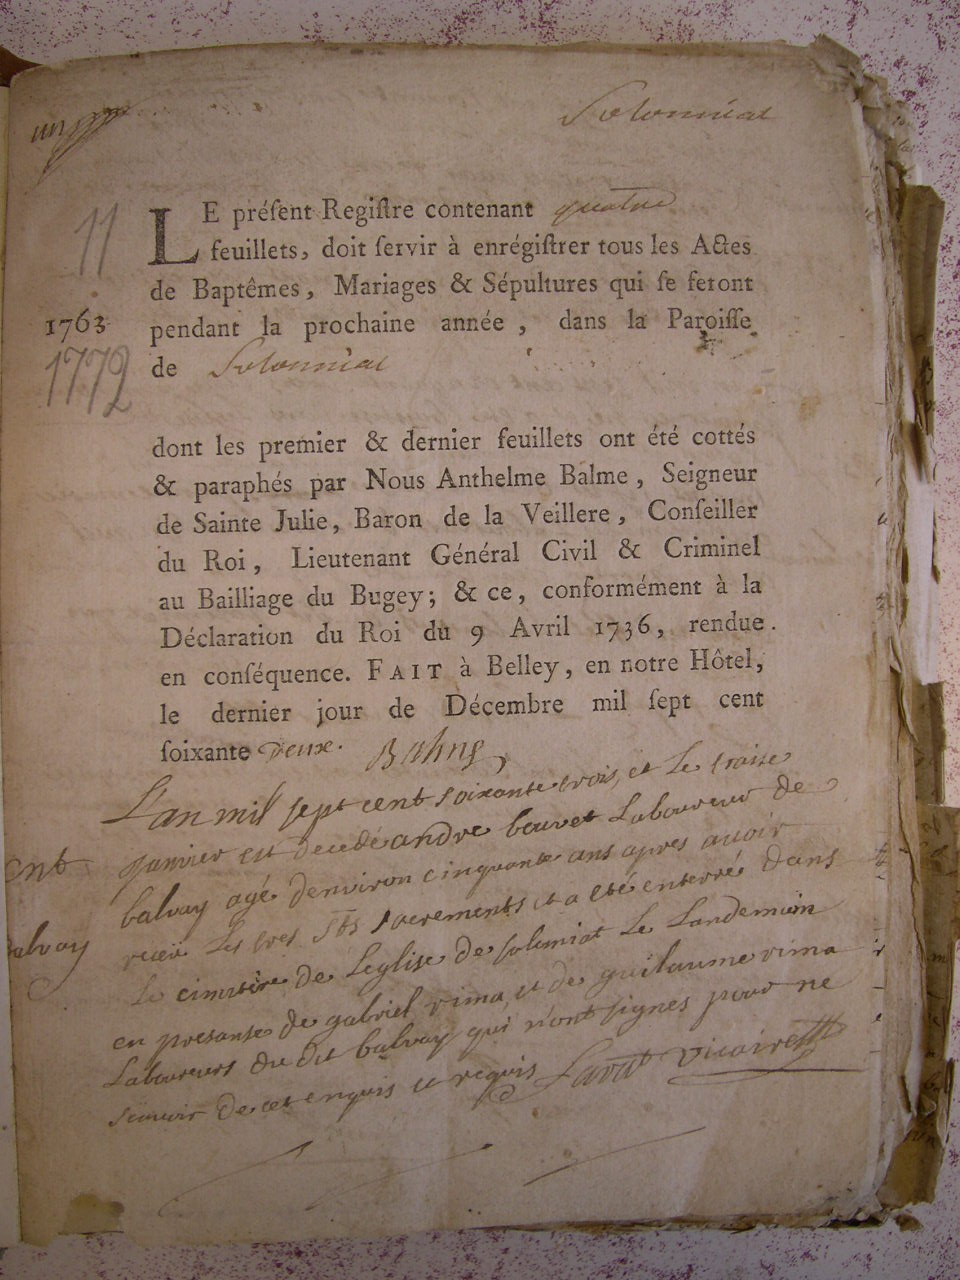 un
Solomiat
11
1763
1772
LE préſent Regiſtre contenant quatre
feuillets, doit ſervir à enrégiſtrer tous les Actes
de Baptêmes, Mariages & Sépultures qui ſe feront
pendant la prochaine année, dans la Paroiſſe
de Solomiat
dont les premier & dernier feuillets ont été cottés
& paraphés par Nous Anthelme Balme, Seigneur
de Sainte Julie, Baron de la Veillere, Conſeiller
du Roi, Lieutenant Général Civil & Criminel
au Bailliage du Bugey; & ce, conformément à la
Déclaration du Roi du 9 Avril 1736, rendue
en conſéquence. FAIT à Belley, en notre Hôtel,
le dernier jour de Décembre mil ſept cent
ſoixante Deux.
L'an mil sept cent soixante trois, et Le traise
janvier est decedé andre bouvet Laboureur de
balvay agé denviron cinquante ans apres avoir
recëu Les tres Sts sacrements et a eté enterré dans
Le cimitiere de Leglise de solomiat Le Landemain
en presanse de gabriel rima, et de guilaume rima
Laboureurs du dit balvay qui n'ont signes pour ne
scavoir de cet enquis et requis Vicaire
ent
balvay